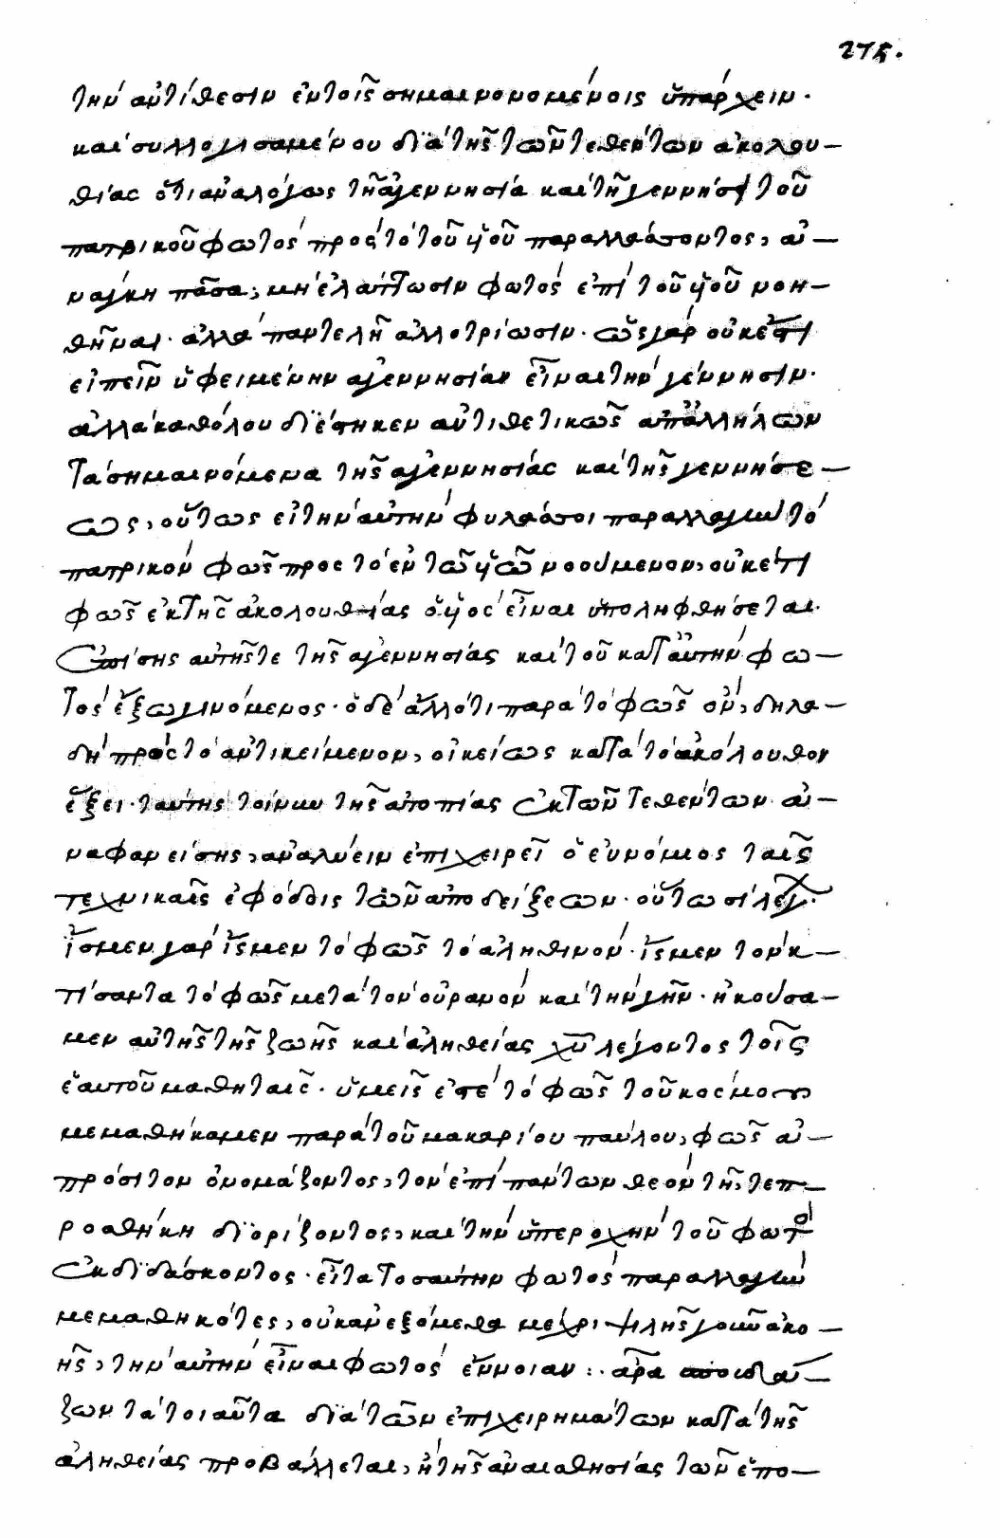 275.
τὴν ἀντίθεσιν ἐν τοῖς σημαινομένοις ὑπάρχειν·
καὶ συλλογισαμένου διὰ τῆς τῶν τεθέντων ἀκολου–
θίας ὅτι ἀναλόγως τῇ ἀγεννησία καὶ τῇ γεννήσει τοῦ
πατρικοῦ φωτὸς πρὸς τὸ τοῦ υἱοῦ παραλλάσσοντος, ἀ–
νάγκη πᾶσα, μὴ ἐλάττωσιν φωτὸς ἐπὶ τοῦ υἱοῦ νοη–
θῆναι. ἀλλὰ παντελῆ ἀλλοτρίωσιν. ὡς γὰρ οὐκ ἔστι
εἰπεῖν ὑφειμένην ἀγεννησίαν εἶναι τὴν γέννησιν.
ἀλλὰ καθόλου διέστηκεν ἀντιθετικῶς ἀπ' ἀλλήλων
τὰ σημαινόμενα τῆς ἀγεννησίας καὶ τῆς γεννήσε–
ως, οὕτως εἰ τὴν αὐτὴν φυλάσσοι παραλλαγὴν τὸ
πατρικὸν φῶς πρὸς τὸ ἐν τῶ υἱῶ νοούμενον, οὐκέτι
φῶς ἐκ τῆς ἀκολουθίας ὁ υἱὸς εἶναι ὑποληφθήσεται.
ἐπίσης αὐτῆς τε τῆς ἀγεννησίας καὶ τοῦ κατ' αὐτὴν φω–
τὸς ἔξω γινόμενος. ὁ δὲ ἄλλό τι παρὰ τὸ φῶς ὢν, δηλα–
δὴ πρὸς τὸ ἀντικείμενον, οἰκείως κατὰ τὸ ἀκόλουθον
ἕξει. ταύτης τοίνυν τῆς ἀτοπίας ἐκ τῶν τεθέντων ἀ–
ναφανείσης, ἀναλύειν ἐπιχειρεῖ ὁ εὐνόμιος ταῖς
τεχνικαῖς ἐφόδοις τῶν ἀποδείξεων. οὕτωσὶ λέγ.
ἴσμεν γὰρ ἴσμεν τὸ φῶς τὸ ἀληθινόν. ἴσμεν τὸν κ–
τίσαντα τὸ φῶς μετὰ τὸν οὐρανὸν καὶ τὴν γῆν. ἠκούσα–
μεν αὐτῆς τῆς ζωῆς καὶ ἀληθείας χῦ λέγοντος τοῖς
ἑαυτοῦ μαθηταῖς. ὑμεῖς ἐστὲ τὸ φῶς τοῦ κόσμου
μεμαθήκαμεν παρὰ τοῦ μακαρίου παύλου, φῶς ἀ–
πρόσιτον ὀνομάζοντος, τὸν ἐπὶ πάντων θεὸν τῆ, τε π–
ροσθήκη διορίζοντος, καὶ τὴν ὑπεροχὴν τοῦ φωτὸ
ἐκδιδάσκοντος. εἶτα τοσαύτην φωτὸς παραλλαγὴν
μεμαθηκότες, οὐκ ἀνεξόμεθα μέχρι ψιλῆς γοῦν ἀκο–
ῆς, τὴν αὐτὴν εἶναι φωτὸς ἔννοιαν :. ἆρα σπουδά–
ζων τὰ τοιαῦτα διὰ τῶν ἐπιχειρημάτων κατὰ τῆς
ἀληθείας προβάλλεται, ἢ τῆς ἀναισθησίας τῶν ἑπο–